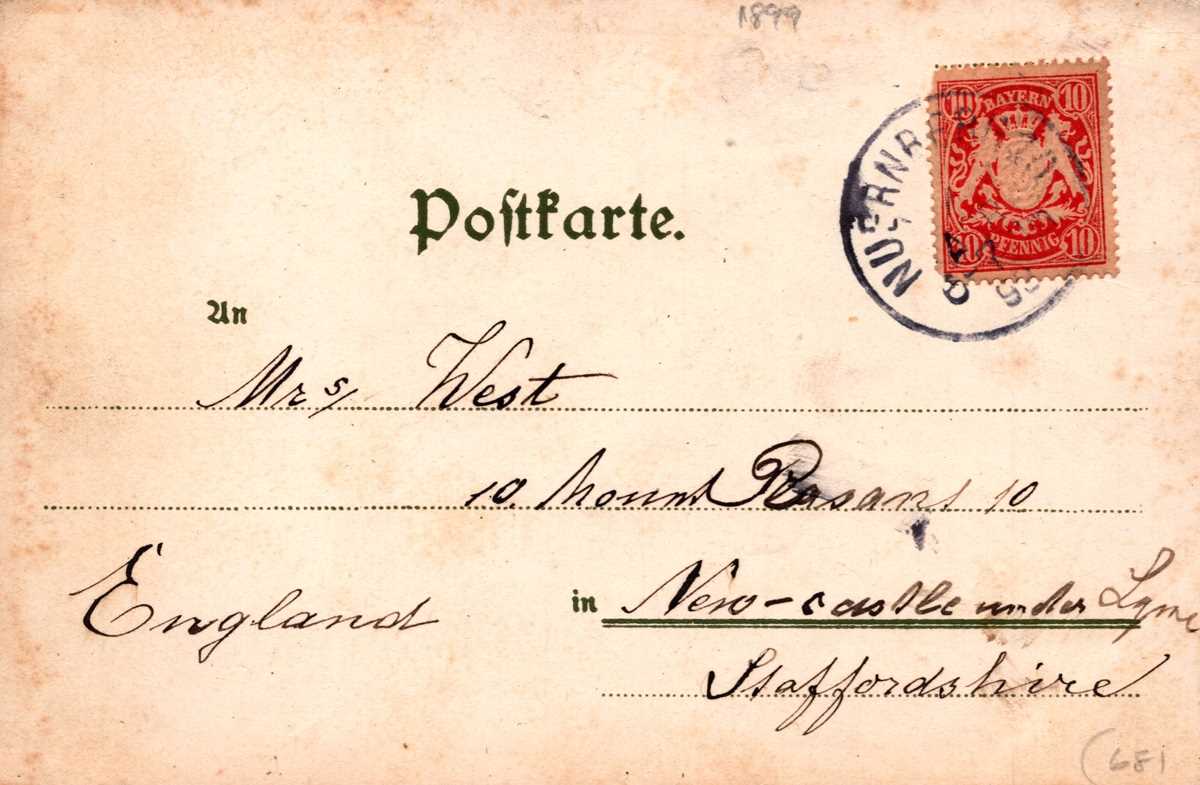 1899
10 BAYERN 10
10 PFENNIG 10
NUERNBERG
Postkarte.
An
Mrs/ West
10. Mount Pleasant 10
England in New-castle under Lyme
Staffordshire
(681